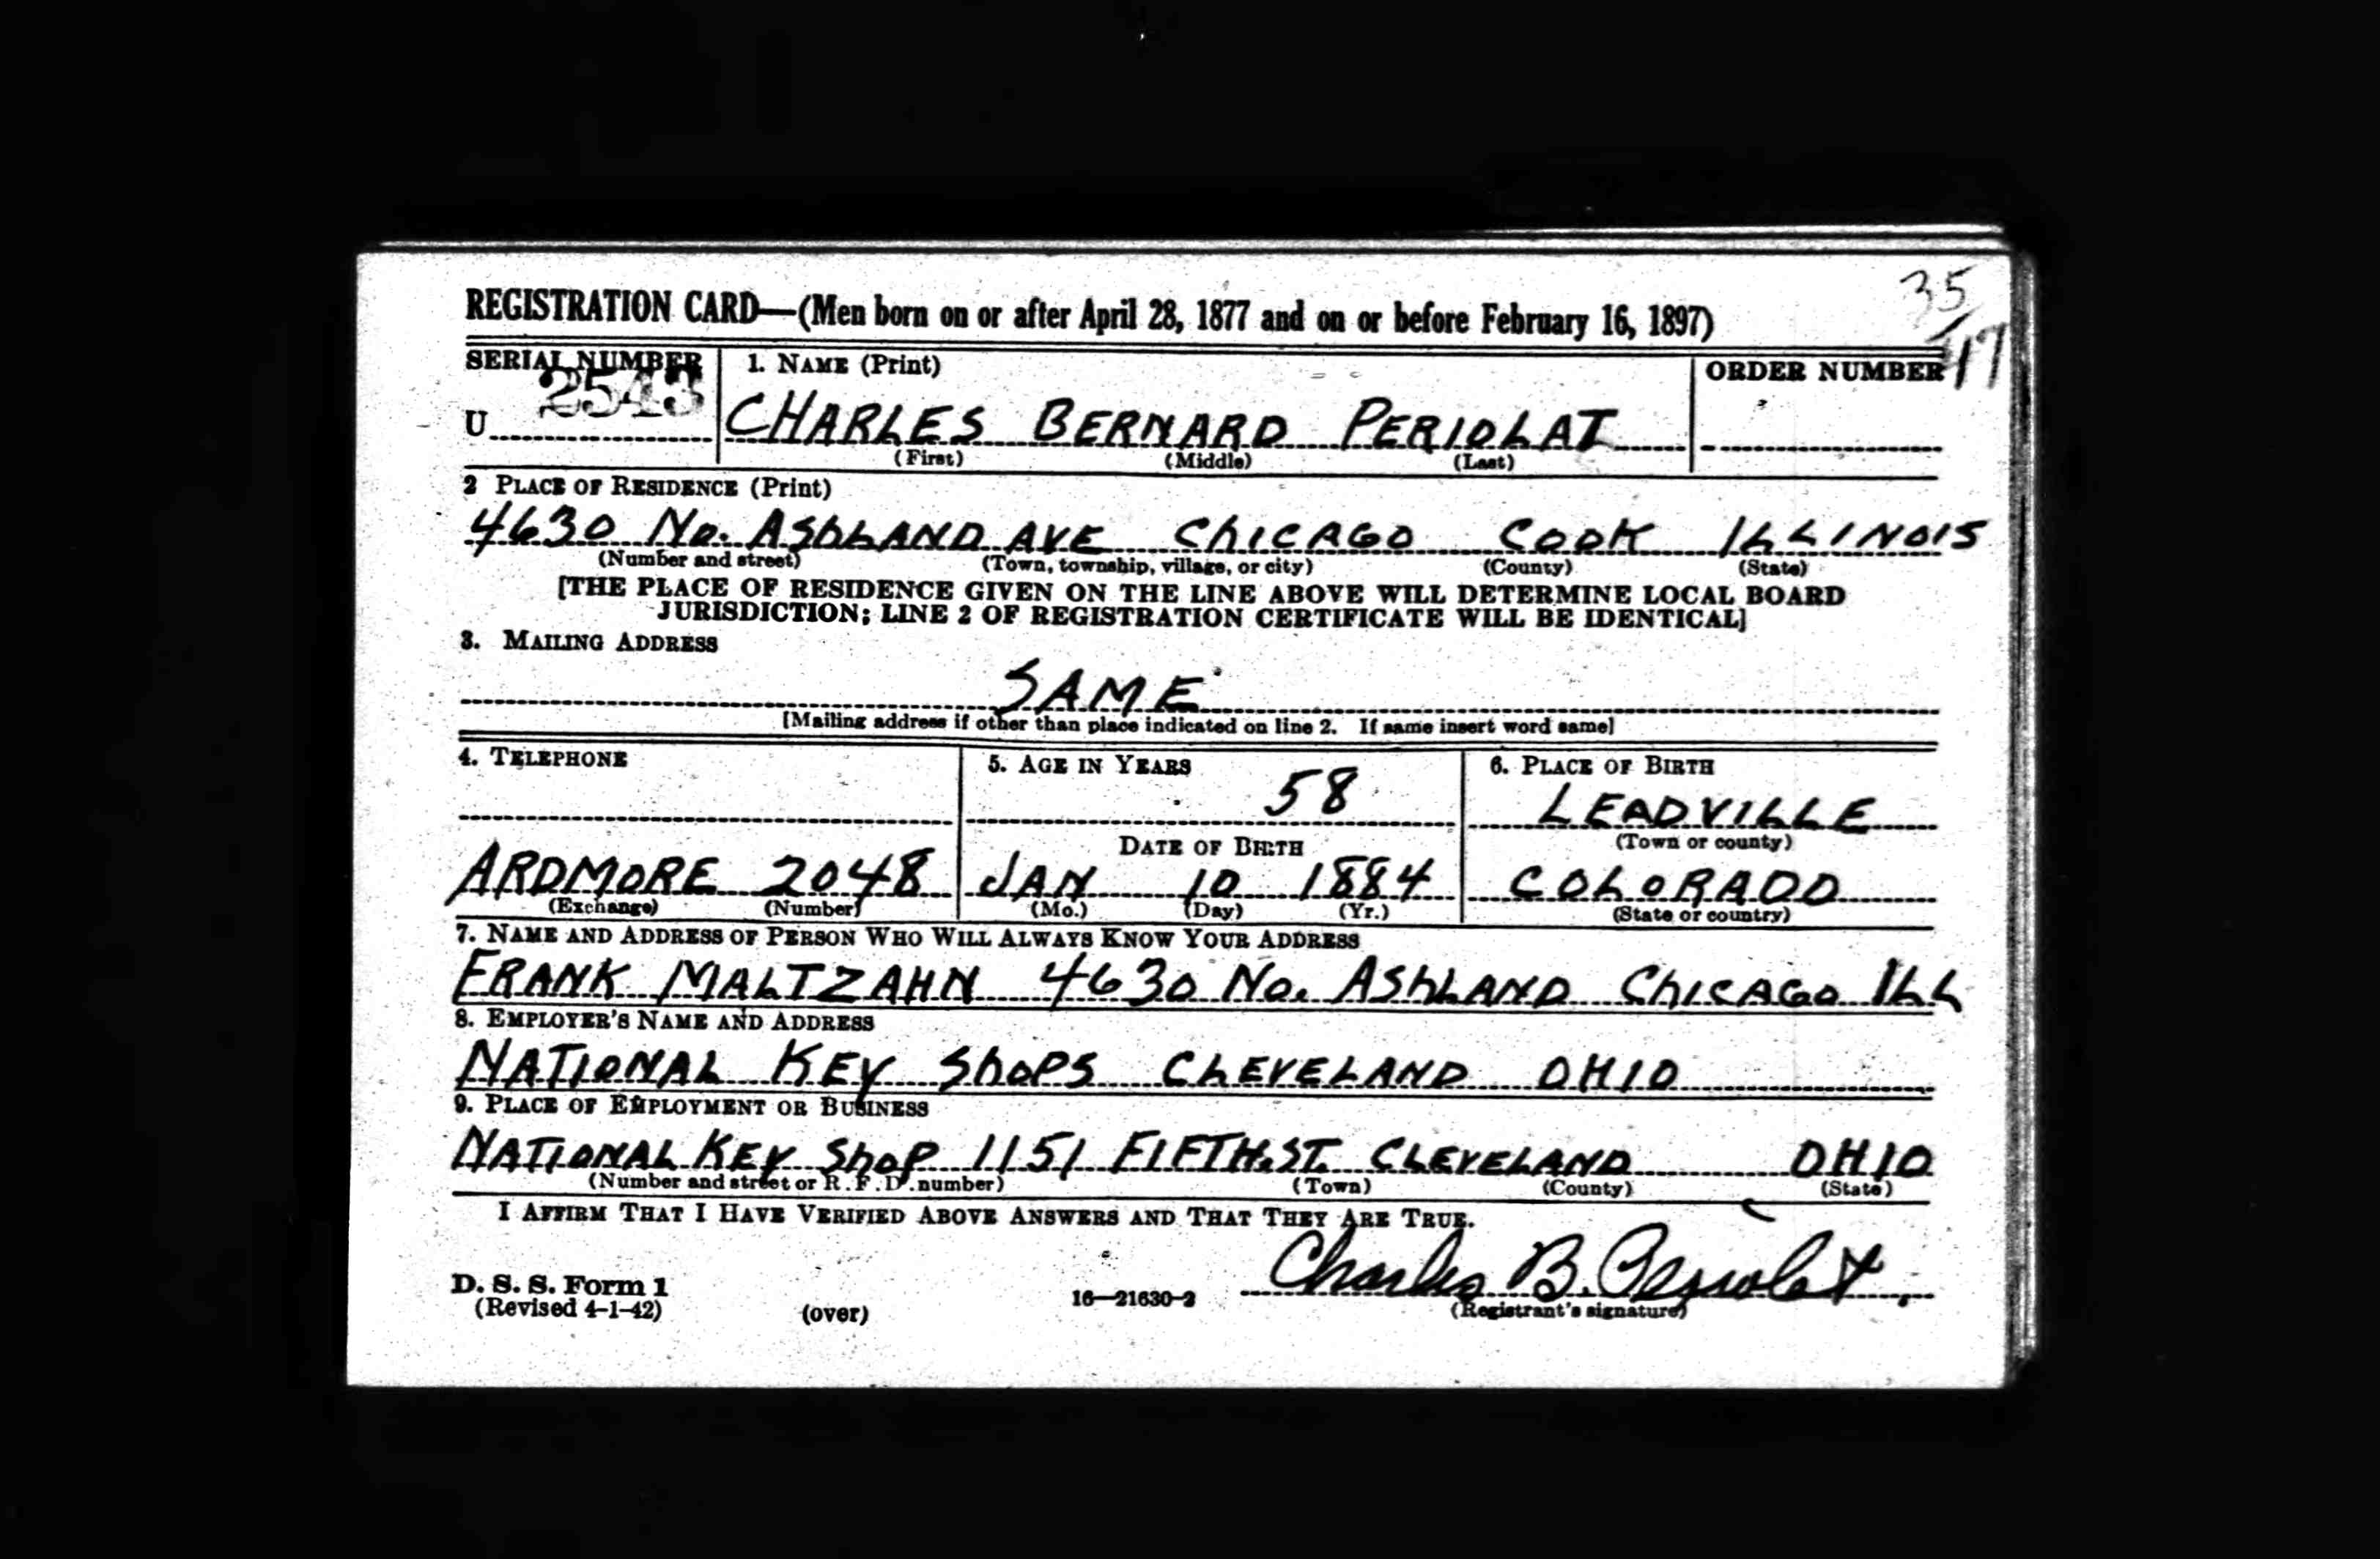 35
17
REGISTRATION CARD—(Men born on or after April 28, 1877 and on or before February 16, 1897)
SERIAL NUMBER
U 2543
1. NAME (Print)
CHARLES BERNARD PERIOLAT
(First) (Middle) (Last)
ORDER NUMBER
2 PLACE OF RESIDENCE (Print)
4630 No. ASHLAND AVE CHICAGO COOK ILLINOIS
(Number and street) (Town, township, village, or city) (County) (State)
[THE PLACE OF RESIDENCE GIVEN ON THE LINE ABOVE WILL DETERMINE LOCAL BOARD
JURISDICTION; LINE 2 OF REGISTRATION CERTIFICATE WILL BE IDENTICAL]
3. MAILING ADDRESS
SAME
[Mailing address if other than place indicated on line 2. If same insert word same]
4. TELEPHONE
ARDMORE 2048
(Exchange) (Number)
5. AGE IN YEARS
58
DATE OF BIRTH
JAN 10 1884
(Mo.) (Day) (Yr.)
6. PLACE OF BIRTH
LEADVILLE
(Town or county)
COLORADO
(State or country)
7. NAME AND ADDRESS OF PERSON WHO WILL ALWAYS KNOW YOUR ADDRESS
FRANK MALTZAHN 4630 No. ASHLAND CHICAGO ILL
8. EMPLOYER'S NAME AND ADDRESS
NATIONAL KEY SHOPS CLEVELAND OHIO
9. PLACE OF EMPLOYMENT OR BUSINESS
NATIONAL KEY SHOP 1151 FIFTH.ST. CLEVELAND OHIO
(Number and street or R. F. D. number) (Town) (County) (State)
I AFFIRM THAT I HAVE VERIFIED ABOVE ANSWERS AND THAT THEY ARE TRUE.
Charles B. Periolat.
(Registrant's signature)
D. S. S. Form 1
(Revised 4-1-42) (over) 16—21630-2